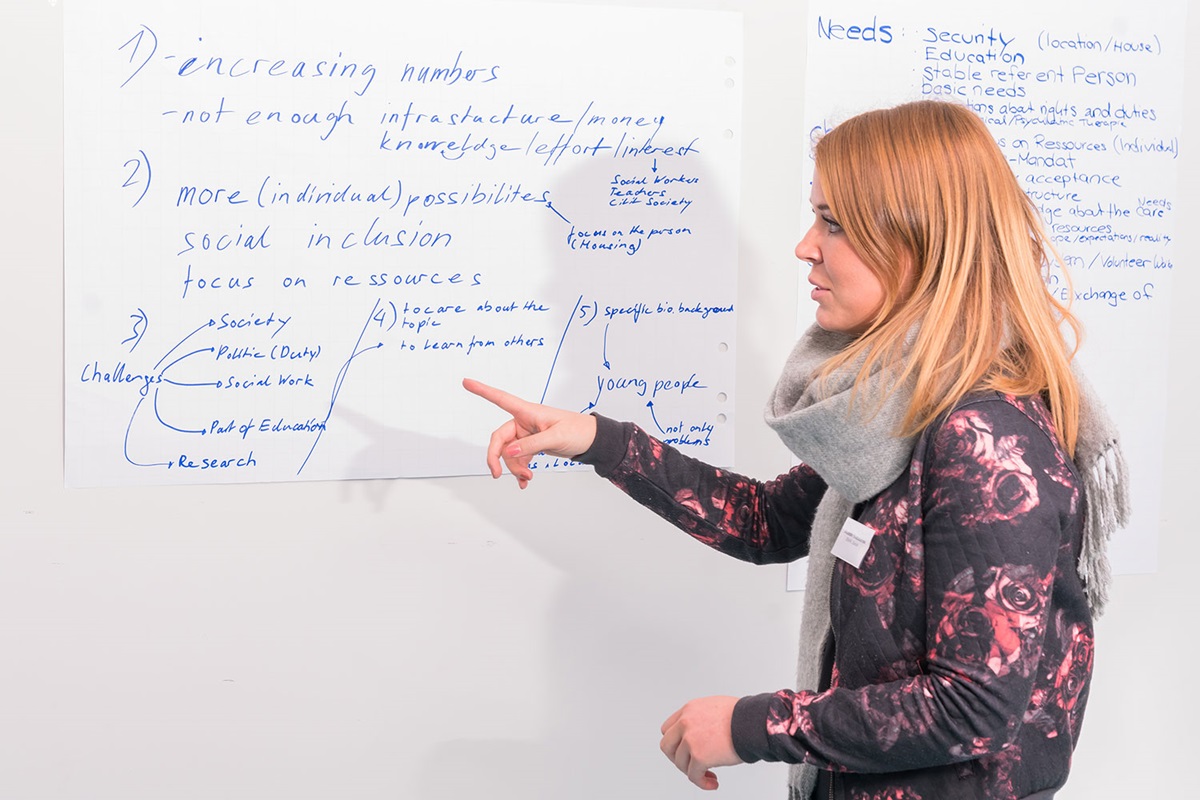 1) -increasing numbers
-not enough infrastucture/money
knowledge/effort/interest
Social Workers
Teachers
Civil Society
2) more (individual) possibilites
focus on the person
(Housing)
social inclusion
focus on ressources
3) Challenges
Society
Politic (Duty)
Social Work
Part of Education
Research
4) to care about the
topic
to learn from others
5) specific bio. background
young people
not only
problems
Needs: Security (location/House)
Education
stable referent Person
basic needs
about rights and duties
Therapie
on Ressources (Individual)
-Mandat
acceptance
about the care
Needs
resources
/expectations/reality
/Volunteer Work
/Exchange of